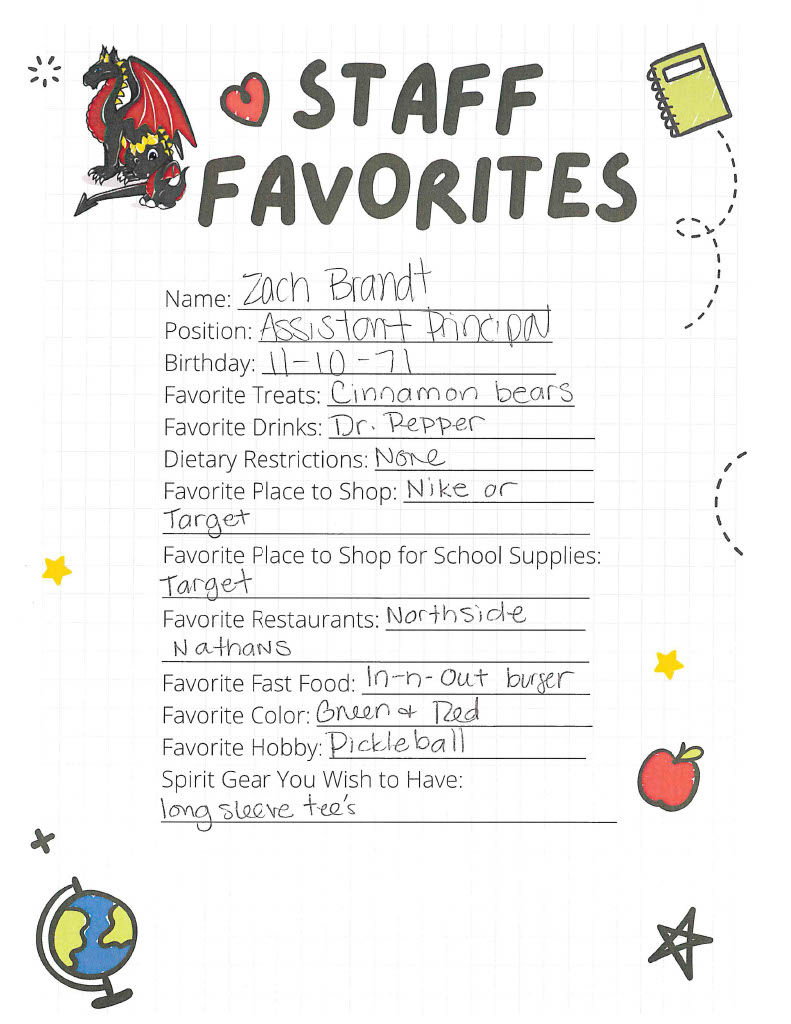 STAFF
FAVORITES
Name: Zach Brandt
Position: Assistant Principal
Birthday: 11-10-71
Favorite Treats: Cinnamon bears
Favorite Drinks: Dr. Pepper
Dietary Restrictions: None
Favorite Place to Shop: Nike or
Target
Favorite Place to Shop for School Supplies:
Target
Favorite Restaurants: Northside
Nathans
Favorite Fast Food: In-n-Out burger
Favorite Color: Green + Red
Favorite Hobby: Pickleball
Spirit Gear You Wish to Have:
long sleeve tee's